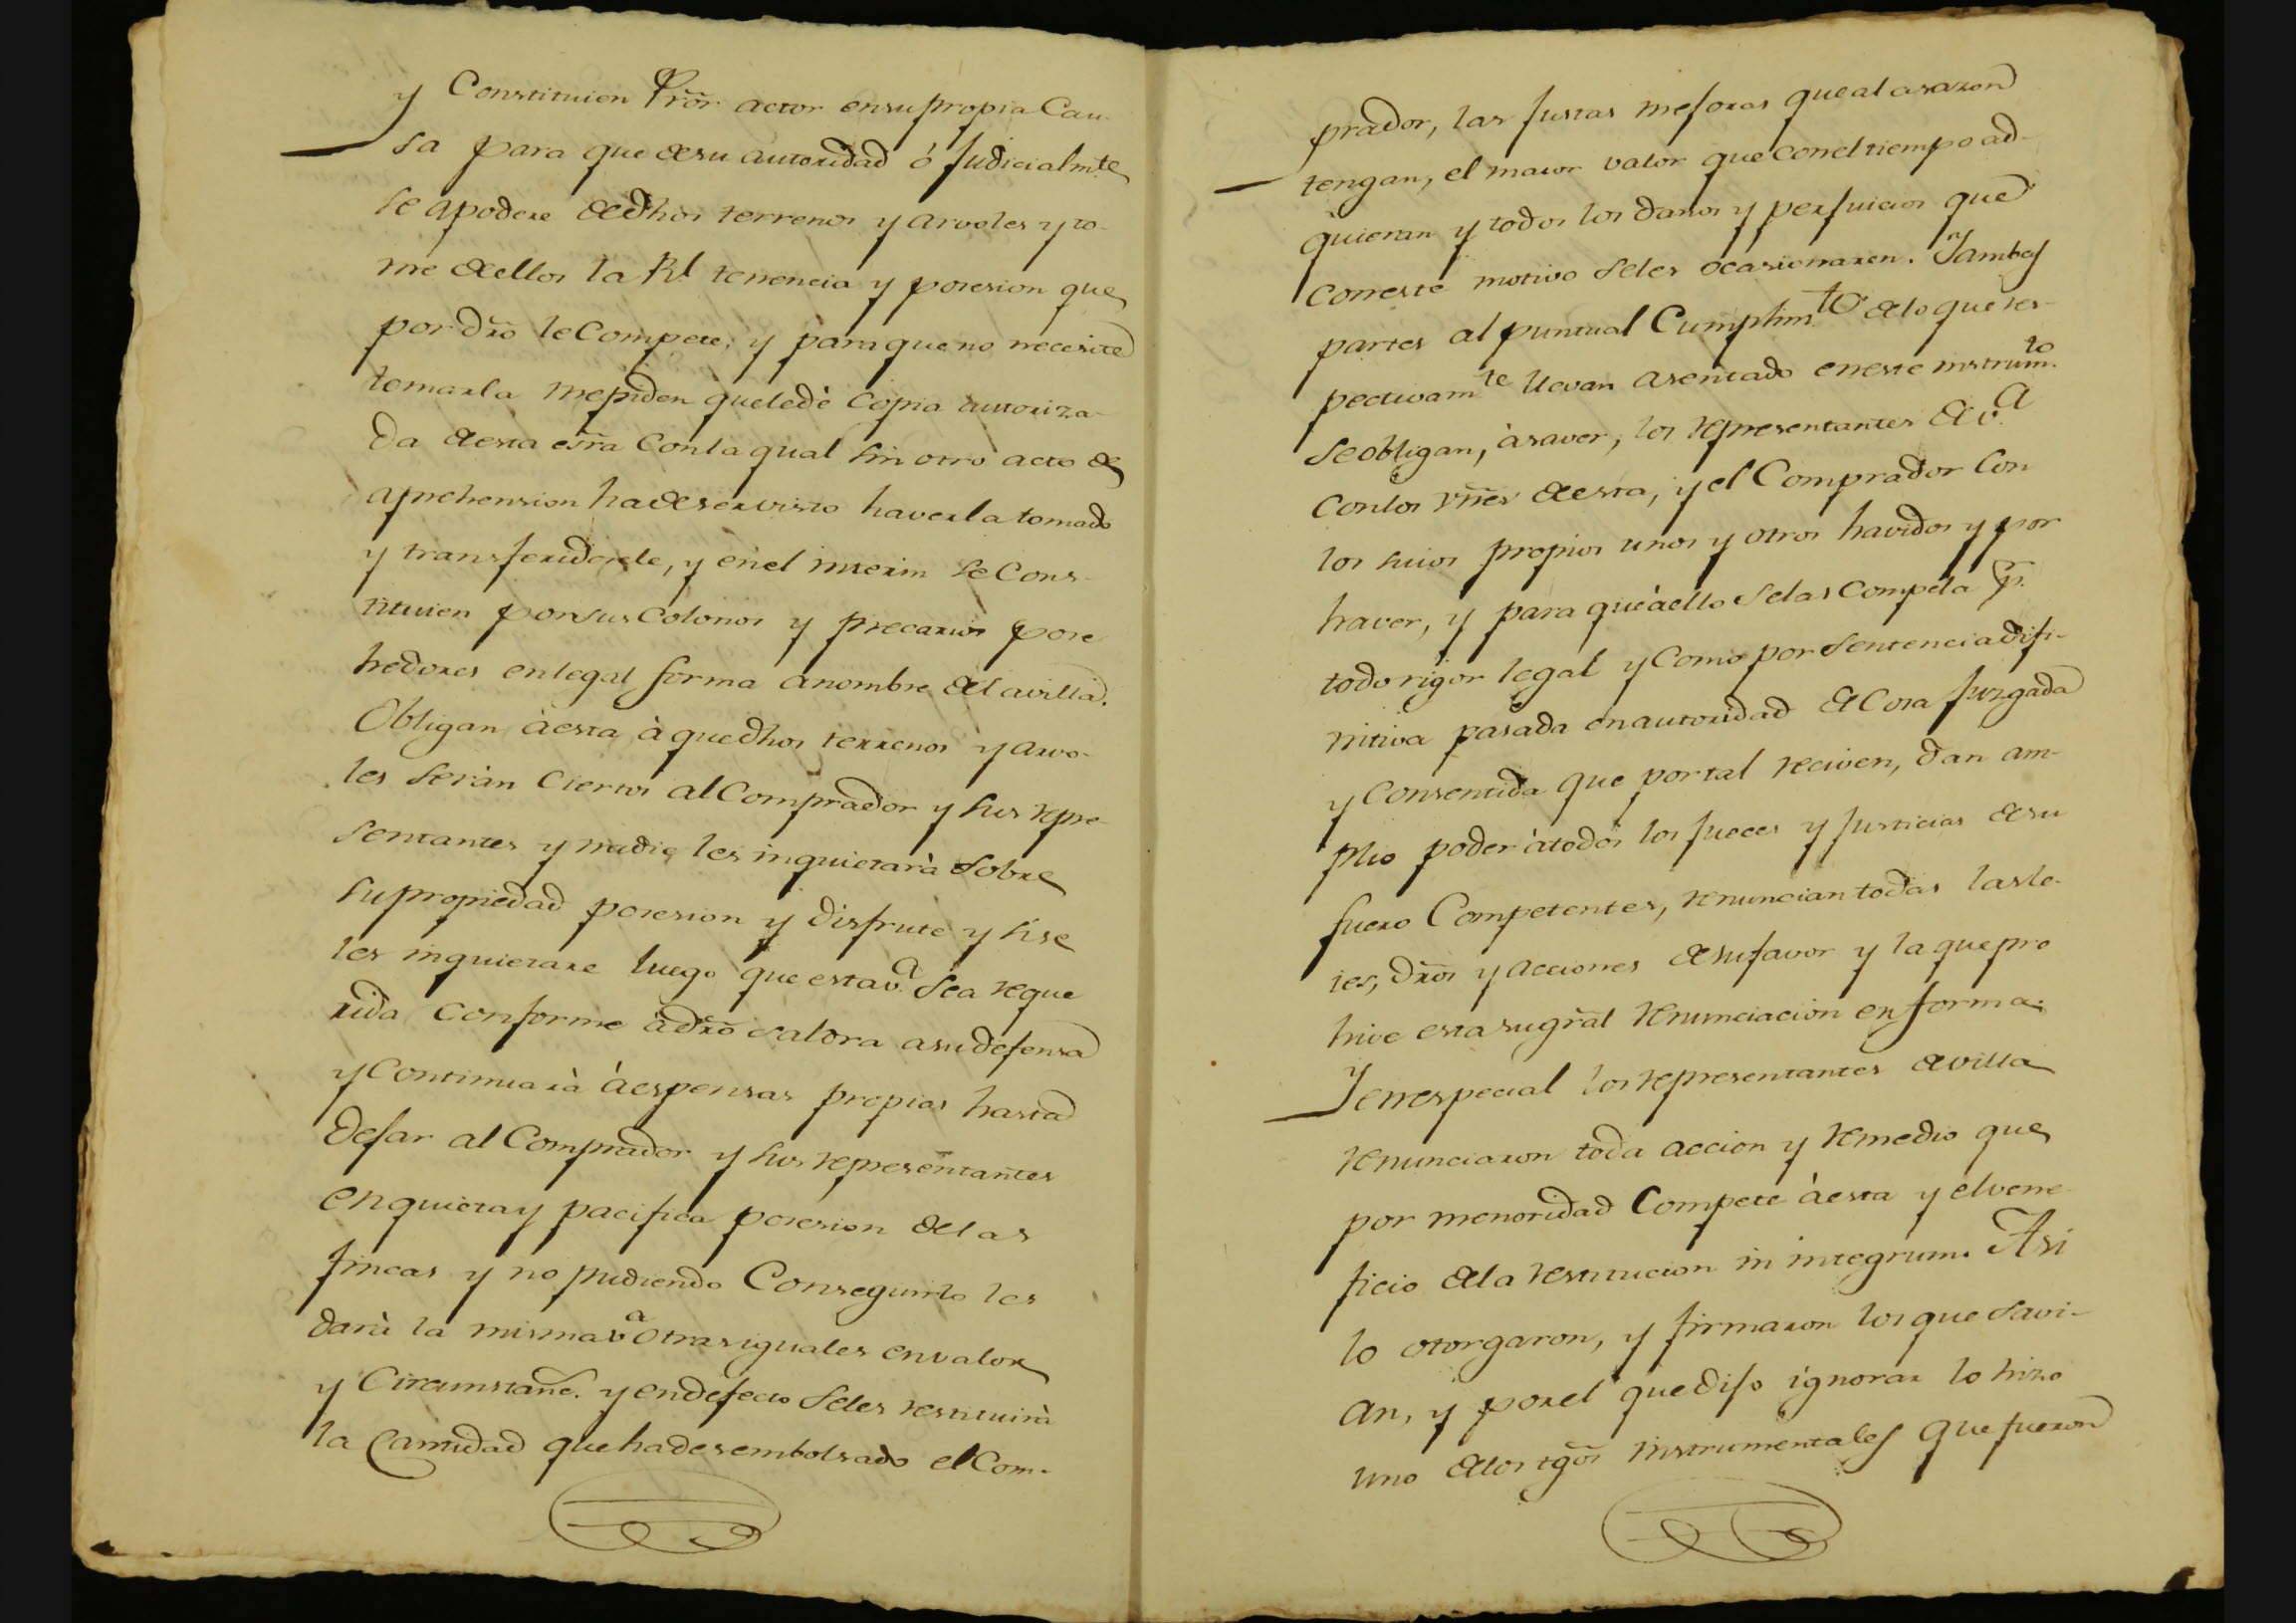 y Constituien Prõr actor ensupropia Cau-
sa para que desu autoridad ó Judicialm.te
se apodere dedhos terrenos y arvoles y to-
me deellos la Rl. tenencia y posesion que
por dr̃o le Compete; y paraqueno necesite
tomarla mepiden queledè Copia autoriza-
da deesta esr̃a Conlaqual sin otro acto de
aprehension hadeservisto haverla tomado
y transferidosele, y enel interin se Cons-
tituien porsus Colonos y precarios pose
hedores enlegal forma anombre delavilla.
Obligan àesta à quedhos terrenos y arvo-
les seràn Ciertos al Comprador y sus repre-
sentantes y nadie les inquietarà sobre
supropiedad posesion y disfrute y sise
les inquietare luego que estav.a sea reque
rida Conforme àdr̃o saldra asudefensa
y Continuarà àespensas propias hasta
dejar al Comprador y sus representantes
enquietay pacifica posesion delas
fincas y no pudiendo Conseguirlo les
darà la mismav.a otrasiguales envalor
y Circunstanc.s y endefecto seles restituirà
la Cantidad quehadesembolsado el Com-
prador, las justas mejoras quealasazon
tengan, el maior valor queconeltiempo ad-
quieran y todos los daños y perjuicios que
coneste motivo seles ocasionaren. Yambas
partes al puntual Cumplim.to deloque res-
pectivam.te llevan asentado eneste instrum.to
seobligan, àsaver, los representantes dev.a
conlos vñes deesta, y el Comprador Con
los suios propios unos y otros havidos y por
haver, y para queàello selas Compela p.r
todo rigor legal y Como por sentenciadifi-
nitiva pasada enautoridad deCosa Juzgada
y Consentida que portal reciven, dan am-
plio poder àtodos los jueces y Justicias desu
fuero Competentes, renunciantodas lasle-
ies, dr̃os y acciones desufavor y la quepro
hive estasugr̃al renunciacion enforma.
Yenespecial los representantes devilla
renunciaron toda accion y remedio que
por menoridad Compete àesta y elvene
ficio dela restitucion in integrum. Asi
lo otorgaron, y firmaron los quesavi-
an, y porel quedijo ignorar lo hizo
uno delos tgõs instrumentales quefueron